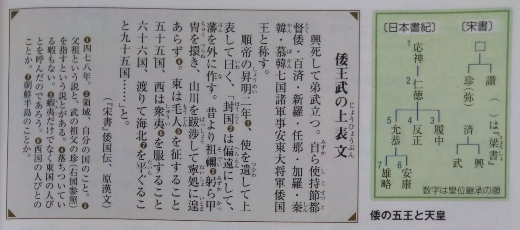 倭王武の上表文
じょうひょうぶん
興死して弟武立つ。自ら使持節都
督倭・百済・新羅・任那・加羅・秦
韓・慕韓七国諸軍事安東大将軍倭国
王と称す。
順帝の昇明二年❶、使を遣して上
表して曰く、「封国❷は偏遠にして、
藩を外に作す。昔より祖禰❸躬ら甲
冑を擐き、山川を跋渉して寧処に遑
あらず❹。東は毛人❺を征すること
五十五国、西は衆夷❻を服すること
六十六国、渡りて海北❼を平ぐるこ
と九十五国……」と。
（『宋書』倭国伝、原漢文）
❶四七八年。❷領域、自分の国のこと。❸
父祖という説と、武の祖父の珍（右図参照）
を指すという説とがある。❹落ちついてい
る暇もない。❺蝦夷だけでなく東国の人び
とを呼んだのであろう。❻西国の人びとの
ことか。❼朝鮮半島のことか。
〔宋書〕
（ ）は『梁書』
讃
珍(弥)
済
興
武
〔日本書紀〕
1応神
2仁徳
3履中
4反正
5允恭
6安康
7雄略
数字は皇位継承の順
倭の五王と天皇